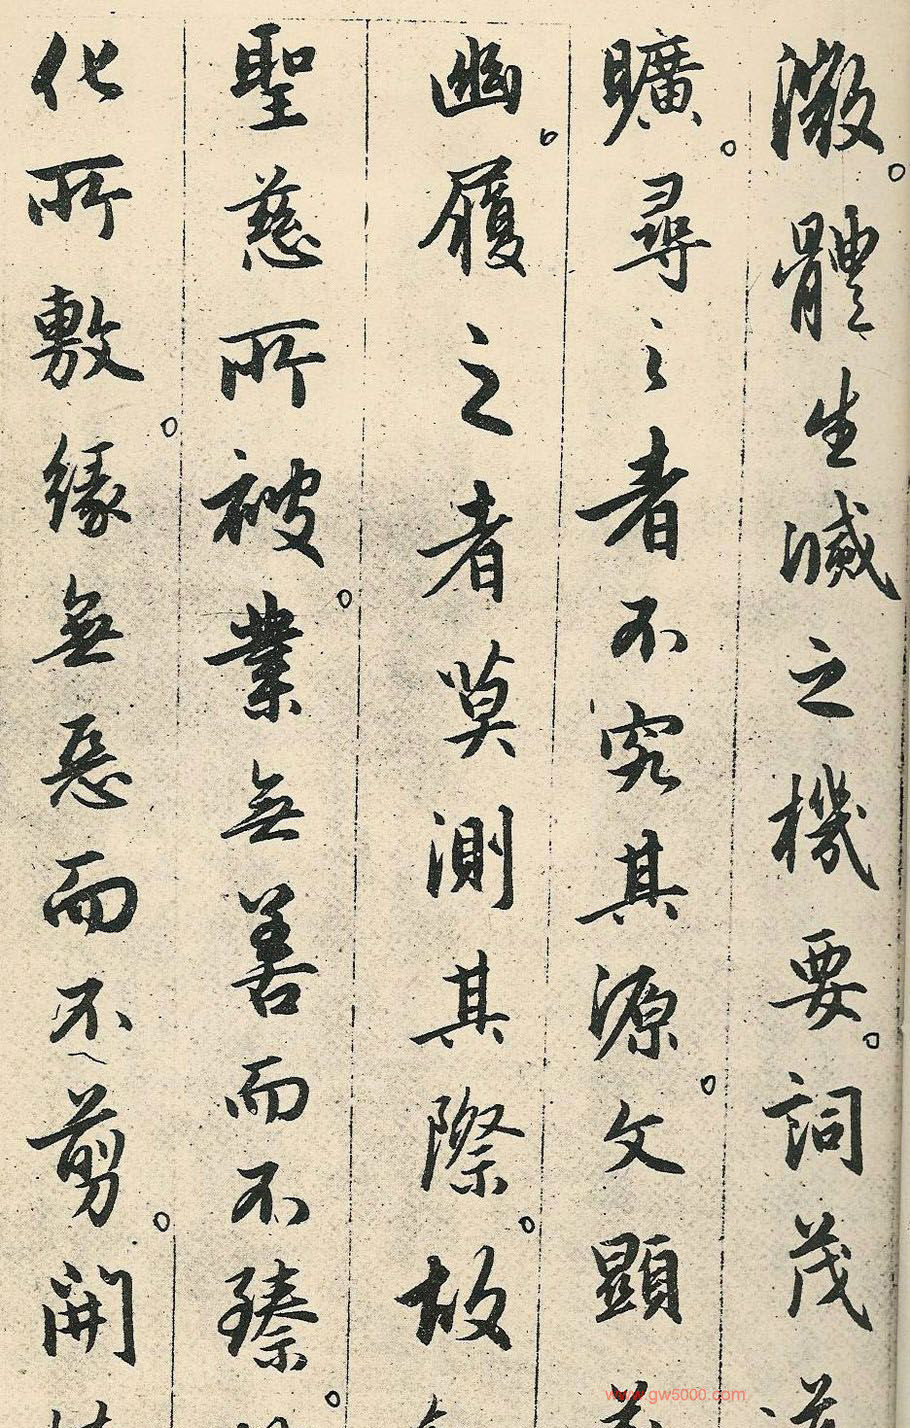 微。體生滅之機要。詞茂
曠。尋之者不究其源。文顯
幽。履之者莫測其際。故
聖慈所被。業無善而不臻。
化所敷。緣無惡而不剪。開
www.gw5000.com